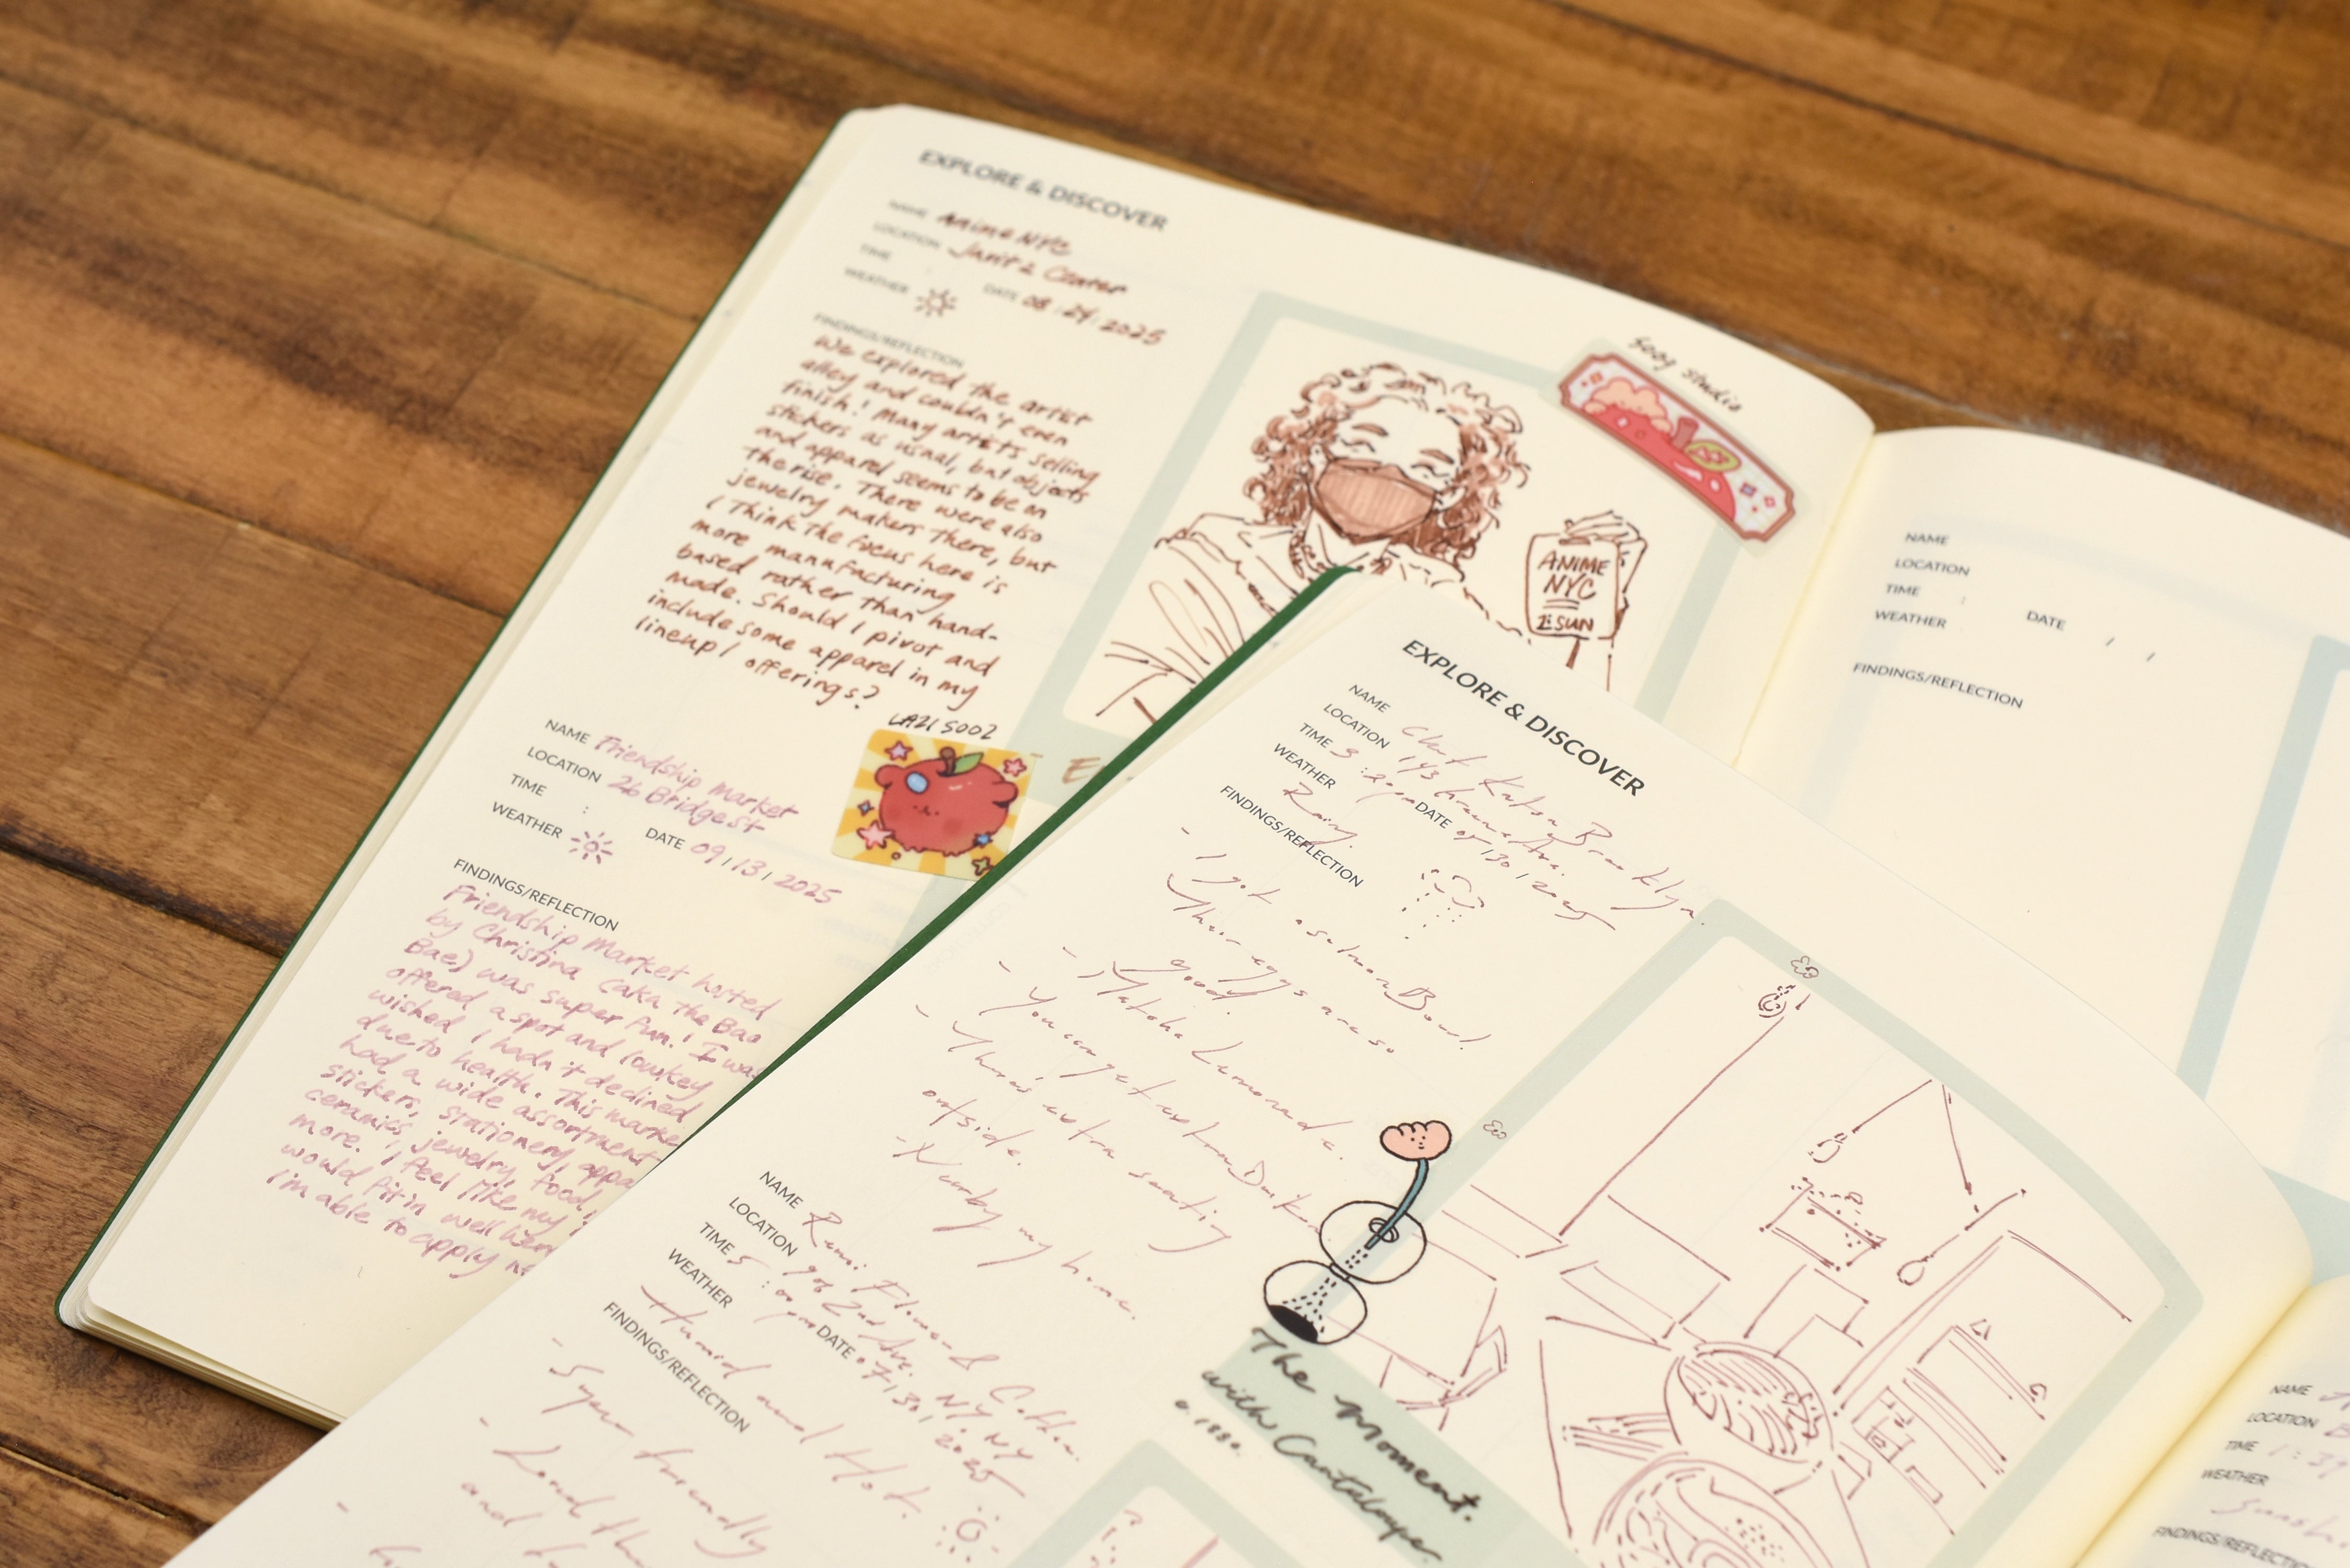 EXPLORE & DISCOVER
NAME Anime NYC
LOCATION Javitz Center
TIME
WEATHER DATE 08 / 24 / 2025
FINDINGS/REFLECTION
We explored the artist
alley and couldn't even
finish! Many artists selling
stickers as usual, but objects
and apparel seems to be on
the rise. There were also
jewelry makers there, but
I think the focus here is
more manufacturing
based rather than hand-
made. Should I pivot and
include some apparel in my
lineup / offerings?
Soog studio
ANIME
NYC
SUN
LAZI SOOZ
NAME Friendship Market
LOCATION 26 Bridge st
TIME :
WEATHER DATE 09 / 13 / 2025
FINDINGS/REFLECTION
Friendship Market hosted
by Christina (aka the Bao
Bae) was super fun! I was
offered a spot and lowkey
wished I hadn't declined
due to health. This marke
had a wide assortment
stickers, stationery, appa
ceramics, jewelry, food,
more. I feel like my
would fit in well here
I'm able to apply
NAME
LOCATION
TIME :
WEATHER DATE / /
FINDINGS/REFLECTION
EXPLORE & DISCOVER
NAME Katsu Brooklyn
LOCATION 143 Ave.
TIME 3 : 20pm
WEATHER Rainy DATE 130 / 2025
FINDINGS/REFLECTION
- I got a salmon Bowl.
Their eggs are so
good!
- Matcha Lemonade.
- You can get extra Drinks
- There's extra seating
outside.
- Nearby my home.
The moment.
with Cantalope.
NAME Flower & Coffee
LOCATION 2nd Ave. NY, NY
TIME 5 : 00pm
WEATHER Humid and Hot. DATE 07 / 31 / 2025
FINDINGS/REFLECTION
- Super friendly
- Loved the
and
NAME
LOCATION
TIME 1 : 39
WEATHER
FINDINGS/REFLECTION